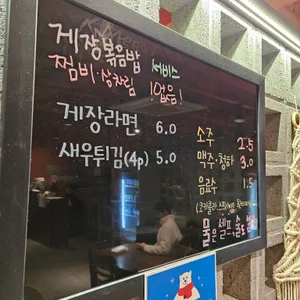 게장볶음밥
쩜비·상차림 서비스
!없음!
게장라면 6.0
새우튀김(4p) 5.0
소주 2.5
맥주·청하 3.0
음료수 1.5
물은 셀프, 술도